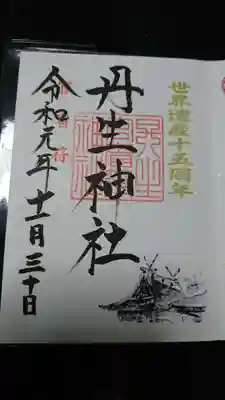 世界遺産十五周年
丹生神社
令和元年十一月三十日